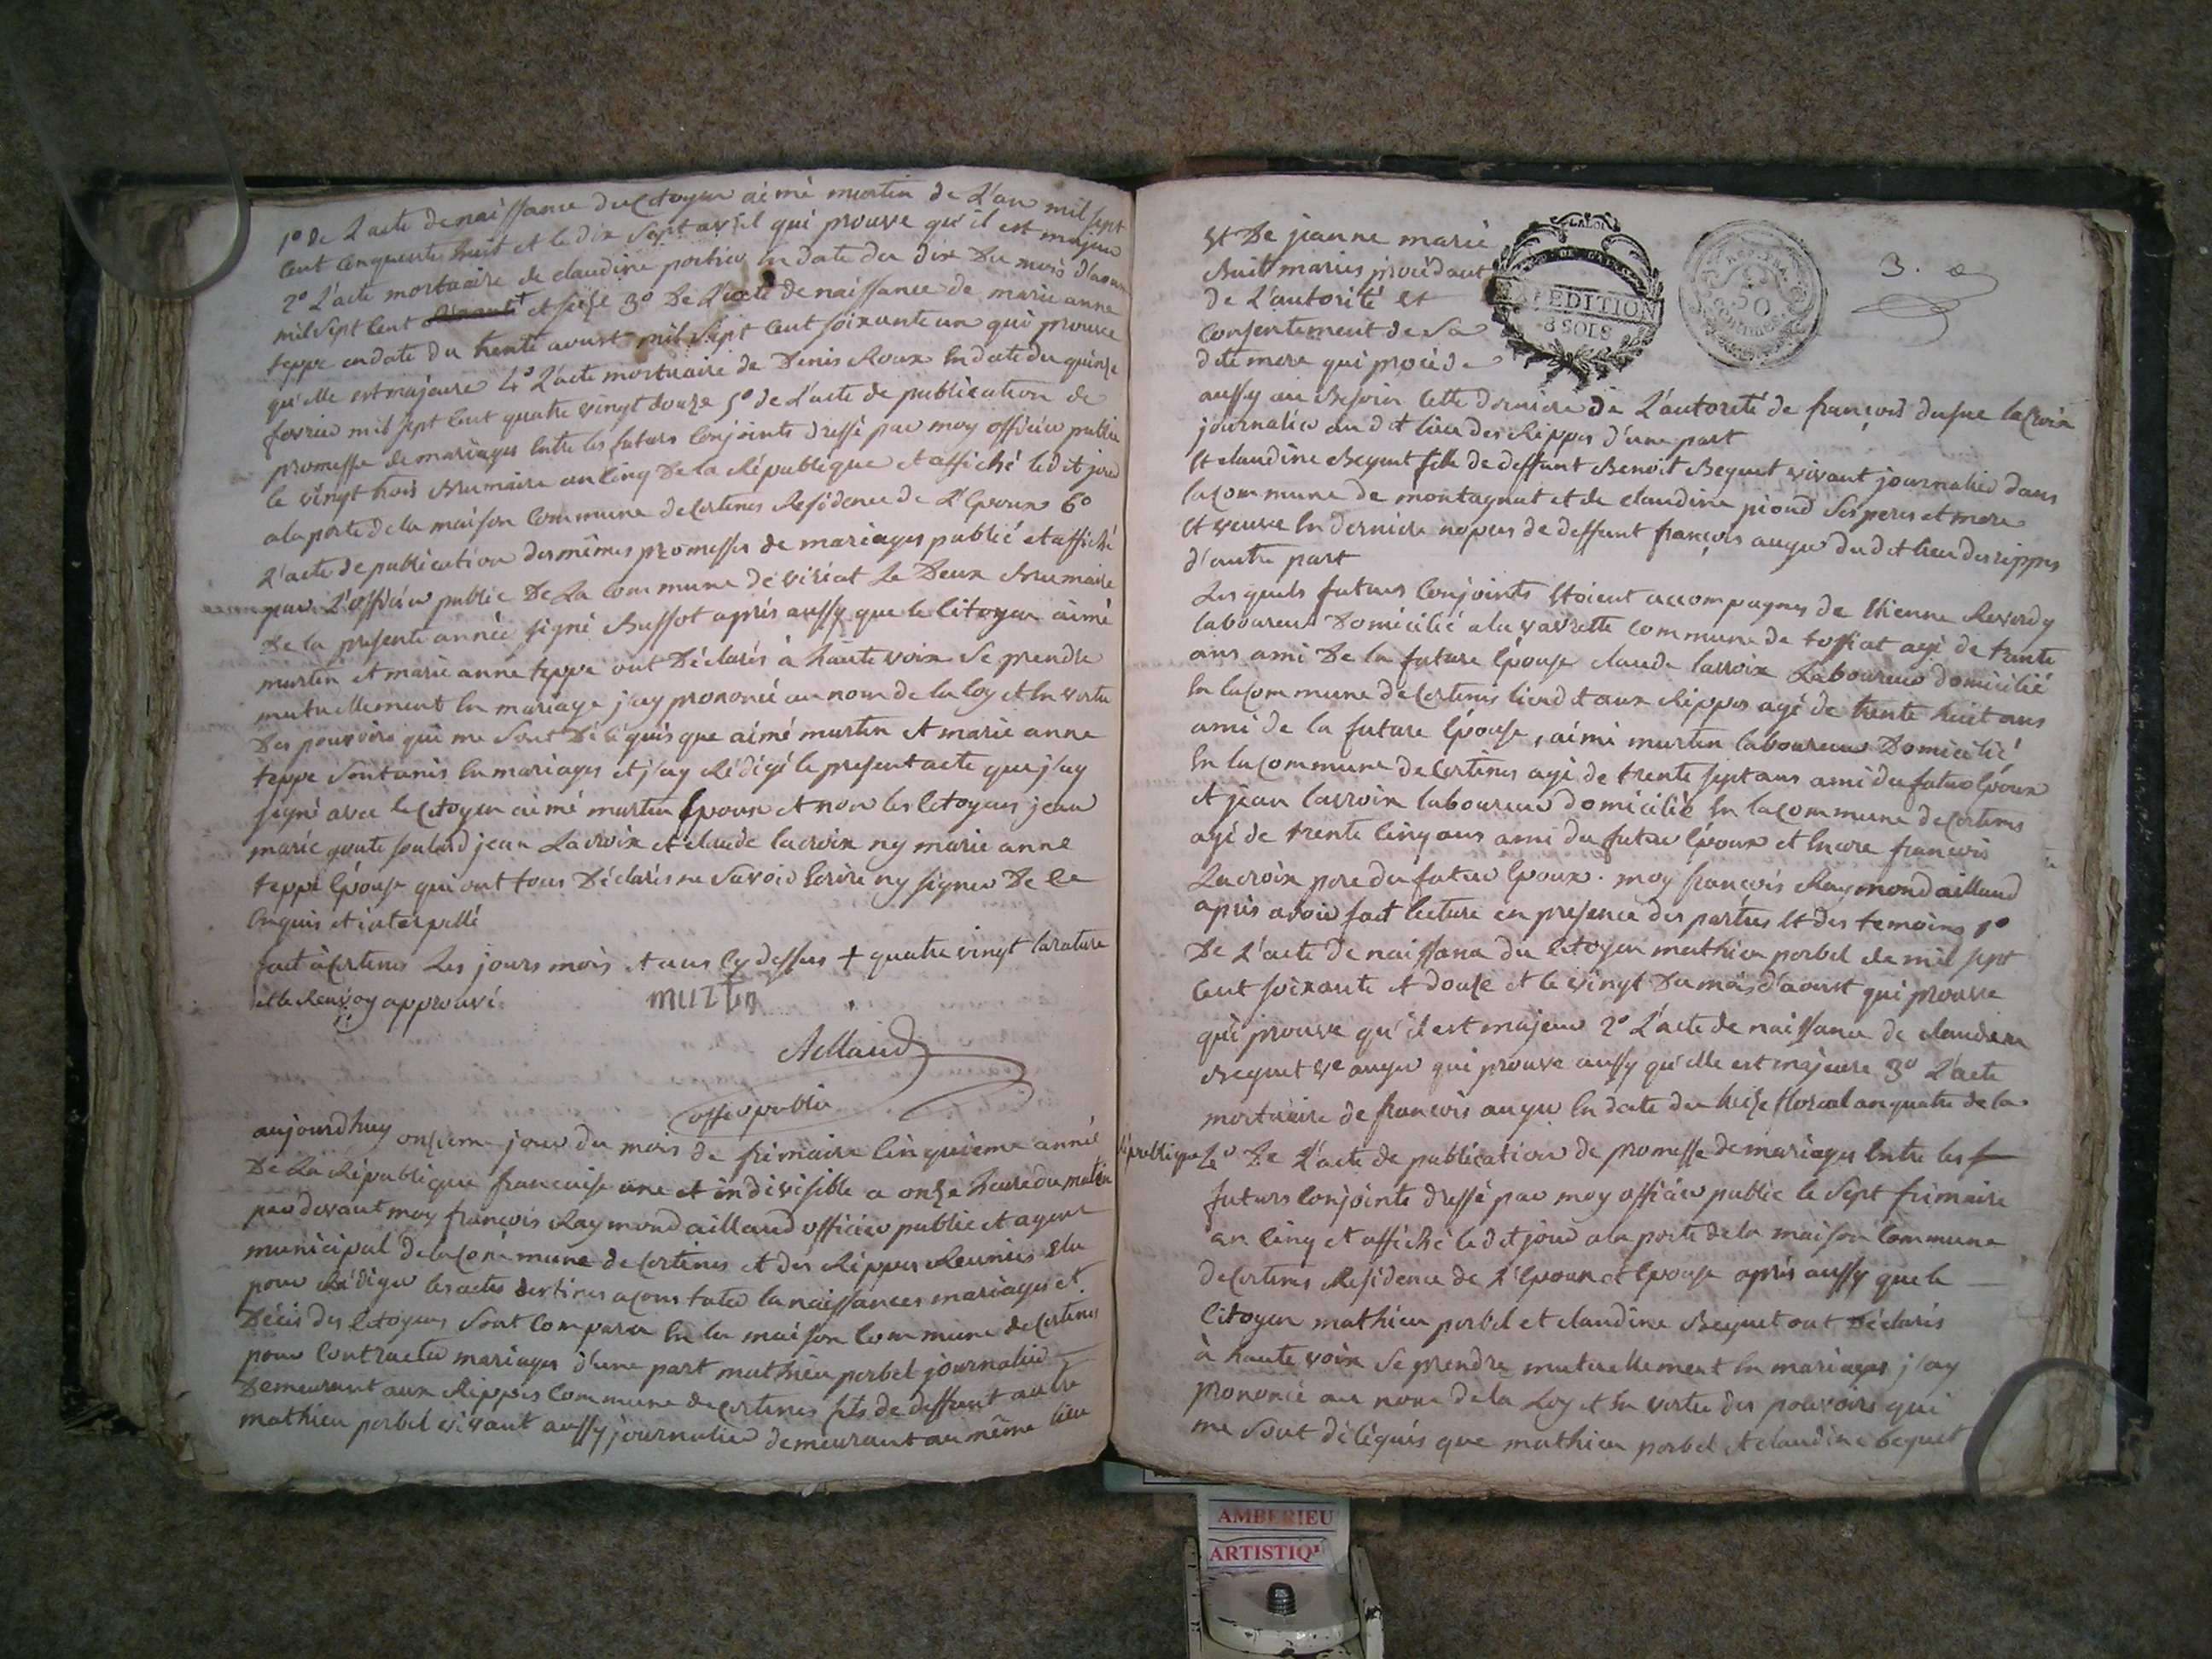 1º de L'acte de naissance du Citoyen aimé murtin de L'an mil sept
cent cinquante huit et le dix sept avril qui prouve qu'il est majeur
2º L'acte mortuaire de claudine en date du dix Du mois d'aoust
mil sept cent et seize 3º De L'acte de naissance de marie anne
teppe en date du trente aoust mil sept cent soixante un qui prouve
qu'elle est majeure 4º L'acte mortuaire de Denis Roux En date du quinze
fevrier mil sept cent quatre vingt douze 5º de L'acte de publication de
promesse de mariages Entre les futurs Conjoints dressé par moy officier public
le vingt trois Brumaire an cinq De la République et affiché ledit jour
a la porte de la maison Commune de Certines Residence de L'Epoux 6º
L'acte de publication des mêmes promesses de mariages publié et affiché
par L'officier public De La Commune de viriat Le Deux Brumaire
De la presente année signé Buffot après aussy que le Citoyen aimé
murtin et marie anne teppe ont Déclarés à haute voix Se prendre
mutuellement En mariage j'ay prononcé au nom de la loy et En vertu
Des pouvoirs qui me Sont Délégués que aimé murtin et marie anne
teppe Sont unis En mariages et j'ay Rédigé le present acte que j'ay
signé avec le Citoyen aimé murtin Epoux et non les Citoyens jean
marie joute jean Lacroix et claude lacroix ny marie anne
teppe Epouse qui ont tous Déclarés ne Savoir Ecrire ny signer De ce
Enquis et interpellé
fait à Certines Les jours mois et ans Cy dessus + quatre vingt la rature
et le Renvoy approuvé.
muztin
Aillaud
officier public
aujourdhuy onzieme jour du mois de frimaire Cinquieme année
De La République francaise une et indivisible a onze heure du matin
par devant moy francois Raymond aillaud officier public et agent
municipal de la Commune de Certines et des Rippes Reunies Elu
pour Rédiger les actes destines a constater la naissances mariages et
Décès des Citoyens Sont Comparu En la maison Commune de Certines
pour Contracter mariages d'une part mathieu porbel journalier
Demeurant aux Rippes Commune de Certines fils de deffunt autre
mathieu porbel vivant aussy journalier demeurant au même lieu
3.
LA LOI
EXPEDITION
8 SOLS
50
Et De jeanne marie
Buit maries procedant
de L'autorité et
Consentement de Sa
dite mere qui procède
aussy au Besoin Cette derniere de L'autorité de françois dusue lacroix
journalier au dit lieu des Rippes d'une part
Et claudine Beguet fille de deffunt Benoit Beguet vivant journalier dans
la Commune de montagnat et de claudine pioud Ses peres et mere
Et veuve En derniere nopces de deffunt françois auger du dit lieu des rippes
d'autre part
Les quels futurs Conjoints Etoient accompagnes de Etienne Reverdy
laboureur Domicilié a la vavrette commune de tossiat agé de trente
ans ami De la future Epouse claude lacroix Laboureur domicilié
En la Commune de Certines lieu dit aux Rippes agé de trente huit ans
ami de la future Epouse, aimé murtin laboureur Domicilié
En la Commune de Certines agé de trente sept ans ami du futur Epoux
et jean lacroix laboureur domicilié En la Commune de Certines
agé de trente Cinq ans ami du futur Epoux et Encore francois
Lacroix pere du futur Epoux. moy francois Raymond aillaud
après avoir fait lecture en presence des parties Et des temoins 1º
De L'acte de naissance du Citoyen mathieu porbel de mil sept
Cent soixante et douze et le vingt Du mois d'aoust qui prouve
qui prouve qu'il est majeur 2º L'acte de naissance de claudine
Beguet ve auger qui prouve aussy qu'elle est majeure 3º L'acte
mortuaire de francois auger En date du treize floreal an quatre de la
République 4º De L'acte de publication de promesse de mariages Entre les
futurs Conjoints dressé par moy officier public le Sept frimaire
an Cinq et affiché ledit jour a la porte de la maison Commune
de Certines Residence de L'Epoux et Epouse après aussy que le
Citoyen mathieu porbel et claudine Beguet ont Déclarés
à haute voix Se prendre mutuellement En mariages j'ay
prononcé au nom de la Loy et En vertu des pouvoirs qui
me Sont délégués que mathieu porbel et claudine beguet
AMBERIEU
ARTISTIQ